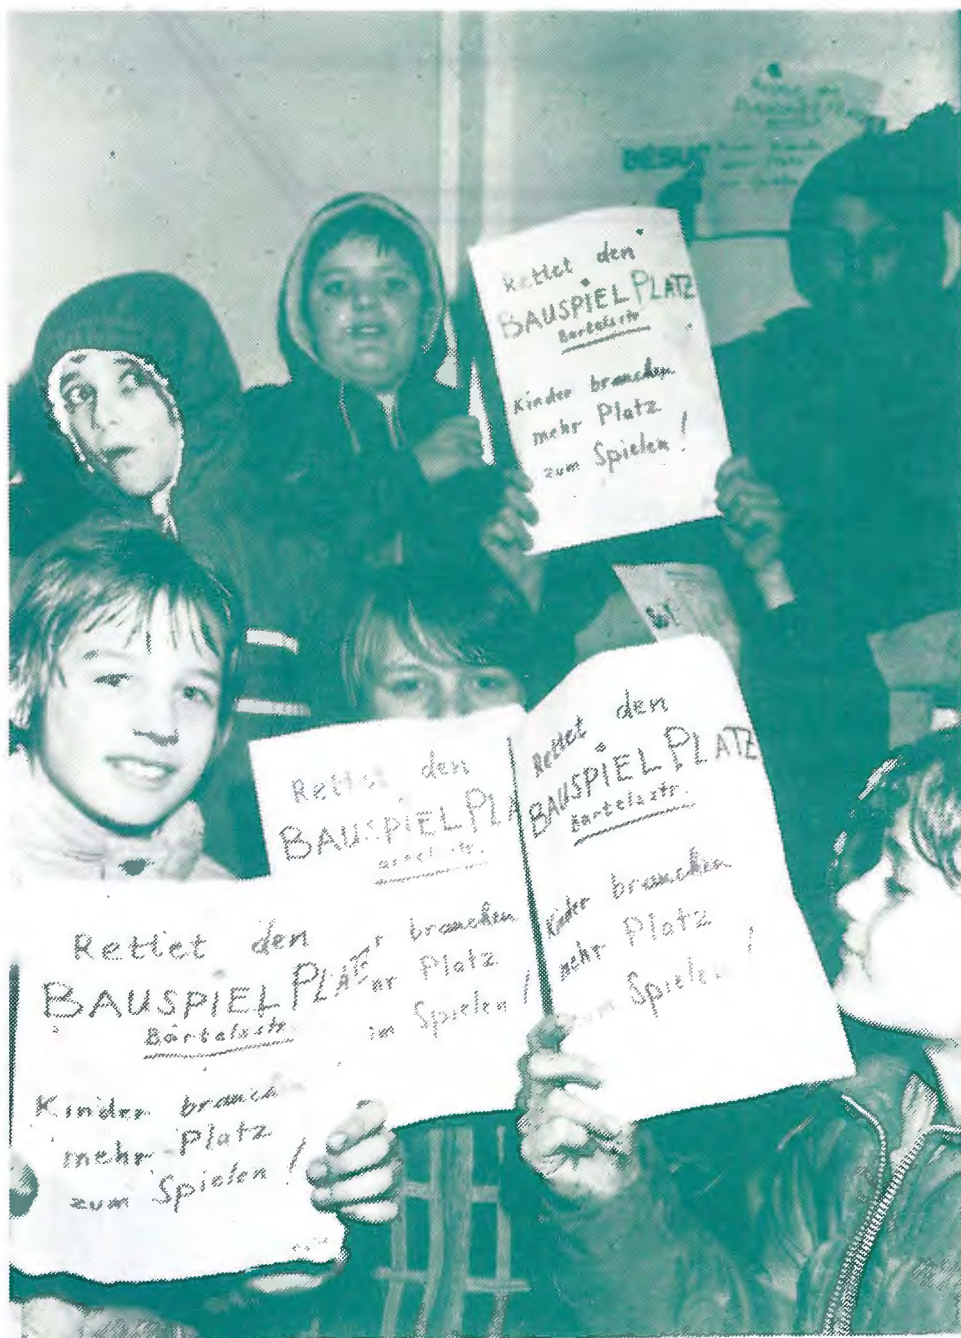 Rettet den
BAUSPIELPLATZ
Bartelsstr.
Kinder brauchen
mehr Platz
zum Spielen!
Rettet den
BAUSPIELPLATZ
Bartelsstr.
Kinder brauchen
mehr Platz
zum Spielen!
Rettet den
BAUSPIELPLA
artelsstr.
r brauchen
hr Platz
m Spielen!
Rettet den
BAUSPIELPLATZ
Bartelsstr.
Kinder brauchen
mehr Platz
zum Spielen!